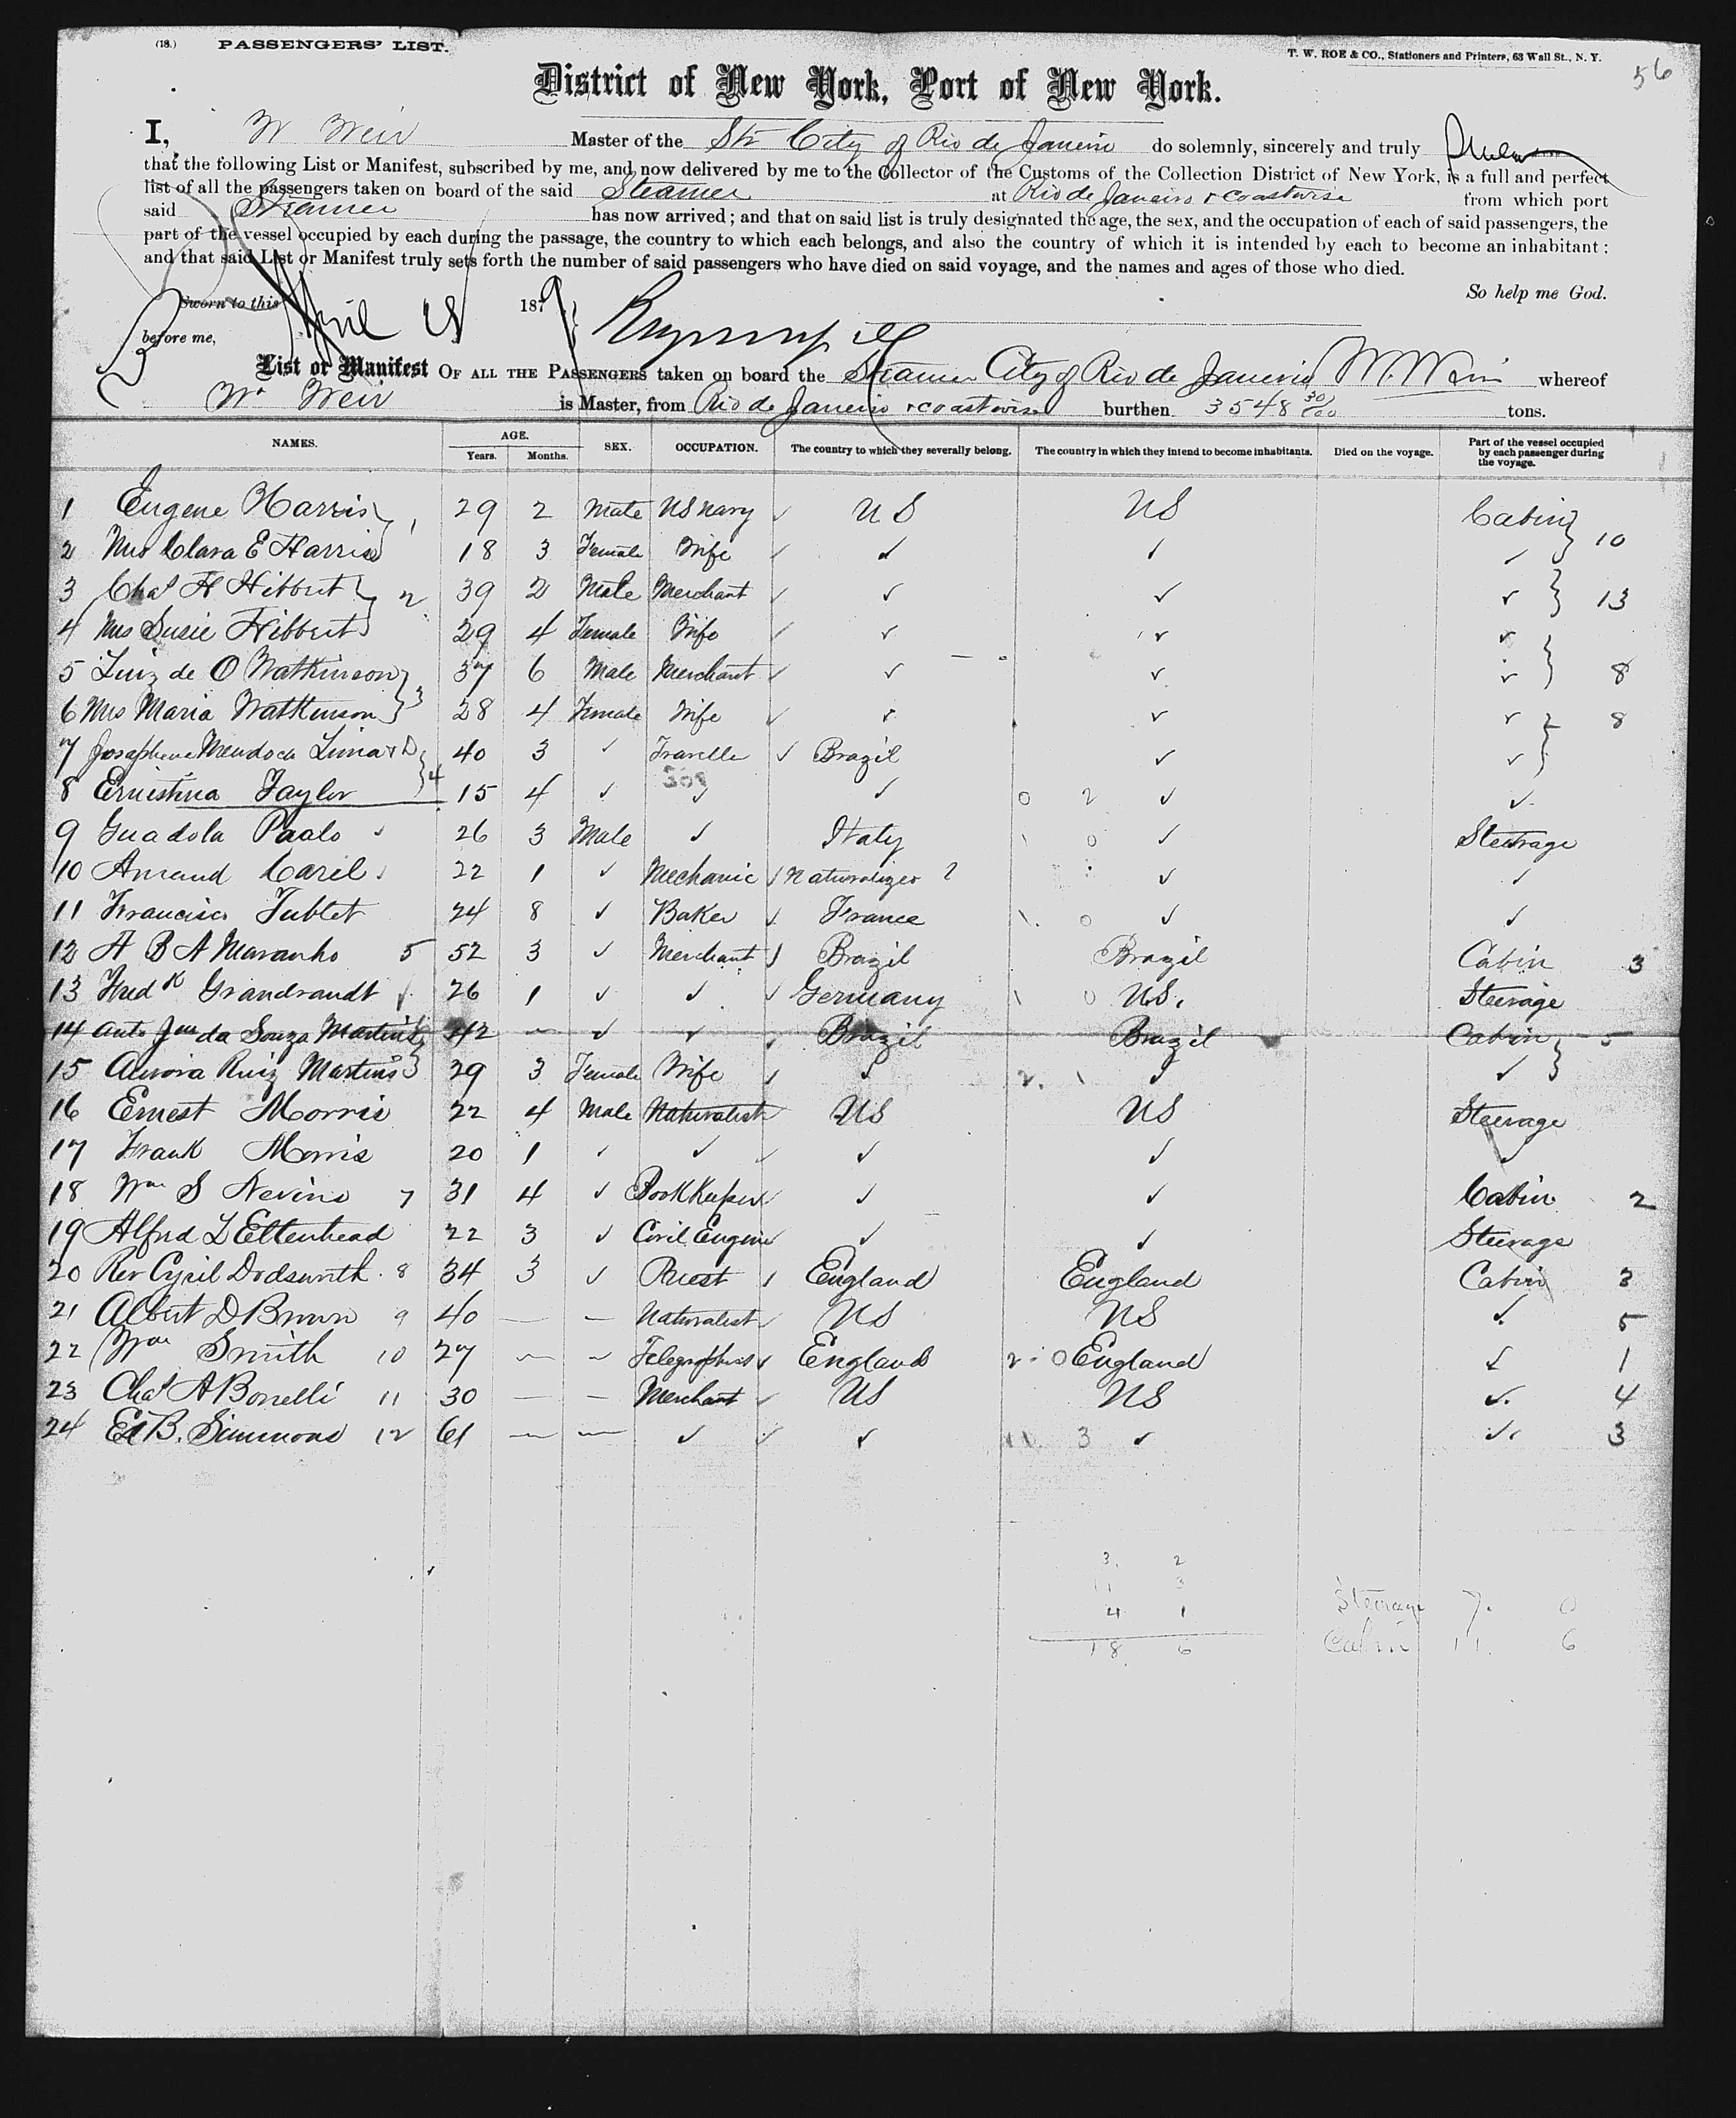 (18.) PASSENGERS' LIST.
T. W. ROE & CO., Stationers and Printers, 63 Wall St., N. Y.
56
District of New York, Port of New York.
I, W Weir Master of the Str City of Rio de Janeiro do solemnly, sincerely and truly
that the following List or Manifest, subscribed by me, and now delivered by me to the Collector of the Customs of the Collection District of New York, is a full and perfect
list of all the passengers taken on board of the said Steamer at Rio de Janeiro & coastwise from which port
said Steamer has now arrived; and that on said list is truly designated the age, the sex, and the occupation of each of said passengers, the
part of the vessel occupied by each during the passage, the country to which each belongs, and also the country of which it is intended by each to become an inhabitant:
and that said List or Manifest truly sets forth the number of said passengers who have died on said voyage, and the names and ages of those who died.
So help me God.
Sworn to this April 18 1879
before me,
List or Manifest OF ALL THE PASSENGERS taken on board the Steamer City of Rio de Janeiro W. Weir whereof
Wm Weir is Master, from Rio de Janeiro & coastwise burthen 3548 30/100 tons.
NAMES. AGE. Years. Months. SEX. OCCUPATION. The country to which they severally belong. The country in which they intend to become inhabitants. Died on the voyage. Part of the vessel occupied by each passenger during the voyage.
1 Eugene Harris } 1 29 2 Male US Navy ✓ US US Cabin }
2 Mrs Clara E Harris 18 3 Female Wife ✓ ✓ ✓ ✓ 10
3 Chas H Hibbert } 2 39 2 Male Merchant ✓ ✓ ✓ ✓ } 13
4 Mrs Susie Hibbert 29 4 Female Wife ✓ ✓ ✓ ✓
5 Luiz de O Watkinson } 3 37 6 Male Merchant ✓ ✓ ✓ ✓ } 8
6 Mrs Maria Watkinson 28 4 Female Wife ✓ ✓ ✓ ✓ 8
7 Josephene Mendoca Lima & D } 4 40 3 ✓ Traveller ✓ Brazil ✓ ✓ }
8 Ernestina Taylor 15 4 ✓ ✓ ✓ 0 2 ✓ ✓
9 Guadola Paalo ✓ 26 3 Male ✓ Italy 1 0 ✓ Steerage
10 Amand Caril ✓ 22 1 ✓ Mechanic ✓ Naturalizer ? ✓ ✓
11 Francisco Tublet 24 8 ✓ Baker ✓ France 1. 0 ✓ ✓
12 A B A Maranho 5 52 3 ✓ Merchant ✓ Brazil Brazil Cabin 3
13 Fredk Grandrandt ✓ 26 1 ✓ ✓ ✓ Germany 1 0 US. Steerage
14 Anto Jm da Souza Martins } 42 — ✓ ✓ ✓ Brazil Brazil Cabin } 5
15 Auroia Ruiz Martins 29 3 Female Wife ✓ ✓ 2. 1 ✓ ✓
16 Ernest Morris 22 4 Male Naturalist US US Steerage
17 Frank Morris 20 1 ✓ ✓ ✓ ✓ ✓ ✓
18 Wm S Nevins 7 31 4 ✓ Book Keeper ✓ ✓ ✓ Cabin 2
19 Alfred L Eltenhead 22 3 ✓ Civil Engine ✓ ✓ ✓ Steerage
20 Rev Cyril Dodsworth 8 34 3 ✓ Priest ✓ England England Cabin 3
21 Albert D Brown 9 40 — — Naturalist ✓ US US ✓ 5
22 Wm Smith 10 27 — — Telegraphist ✓ England 2. 0 England ✓ 1
23 Chas A Borrelli 11 30 — — Merchant ✓ US US ✓ 4
24 Ed B. Simmons 12 61 — — ✓ ✓ ✓ 11. 3 ✓ ✓ 3
3. 2
11 3
4 1 Steerage 7. 0
18 6 Cabin 11. 6